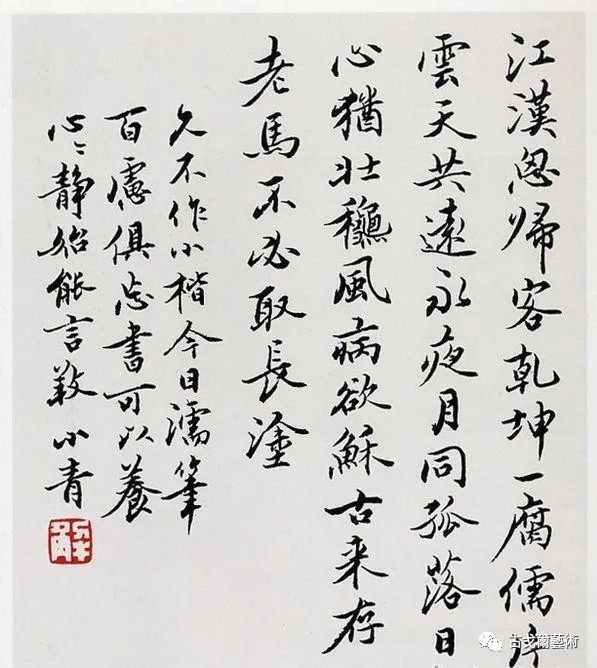 江漢思帰客乾坤一腐儒片
雲天共遠永夜月同孤落日
心猶壯穐風病欲穌古来存
老馬不必取長塗
久不作小楷今日濡筆
百慮俱忘書可以養
心〻靜始能言小青
古戈爾藝術